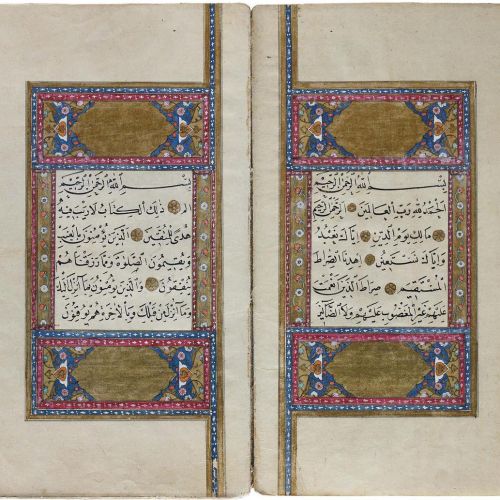 بِسْمِ اللّٰهِ الرَّحْمٰنِ الرَّحِيمِ
اَلْحَمْدُ لِلّٰهِ رَبِّ الْعَالَمِينَ ۝ اَلرَّحْمٰنِ الرَّحِيمِ
مَالِكِ يَوْمِ الدِّينِ ۝ اِيَّاكَ نَعْبُدُ
وَاِيَّاكَ نَسْتَعِينُ ۝ اِهْدِنَا الصِّرَاطَ
الْمُسْتَقِيمَ ۝ صِرَاطَ الَّذِينَ اَنْعَمْتَ
عَلَيْهِمْ غَيْرِ الْمَغْضُوبِ عَلَيْهِمْ وَلَا الضَّالِّينَ
بِسْمِ اللّٰهِ الرَّحْمٰنِ الرَّحِيمِ
الٓمٓ ۝ ذٰلِكَ الْكِتَابُ لَا رَيْبَ فِيهِ
هُدًى لِلْمُتَّقِينَ ۝ اَلَّذِينَ يُؤْمِنُونَ بِالْغَيْبِ
وَيُقِيمُونَ الصَّلٰوةَ وَمِمَّا رَزَقْنَاهُمْ
يُنْفِقُونَ ۝ وَالَّذِينَ يُؤْمِنُونَ بِمَا اُنْزِلَ اِلَيْكَ
وَمَا اُنْزِلَ مِنْ قَبْلِكَ وَبِالْاٰخِرَةِ هُمْ يُوقِنُونَ